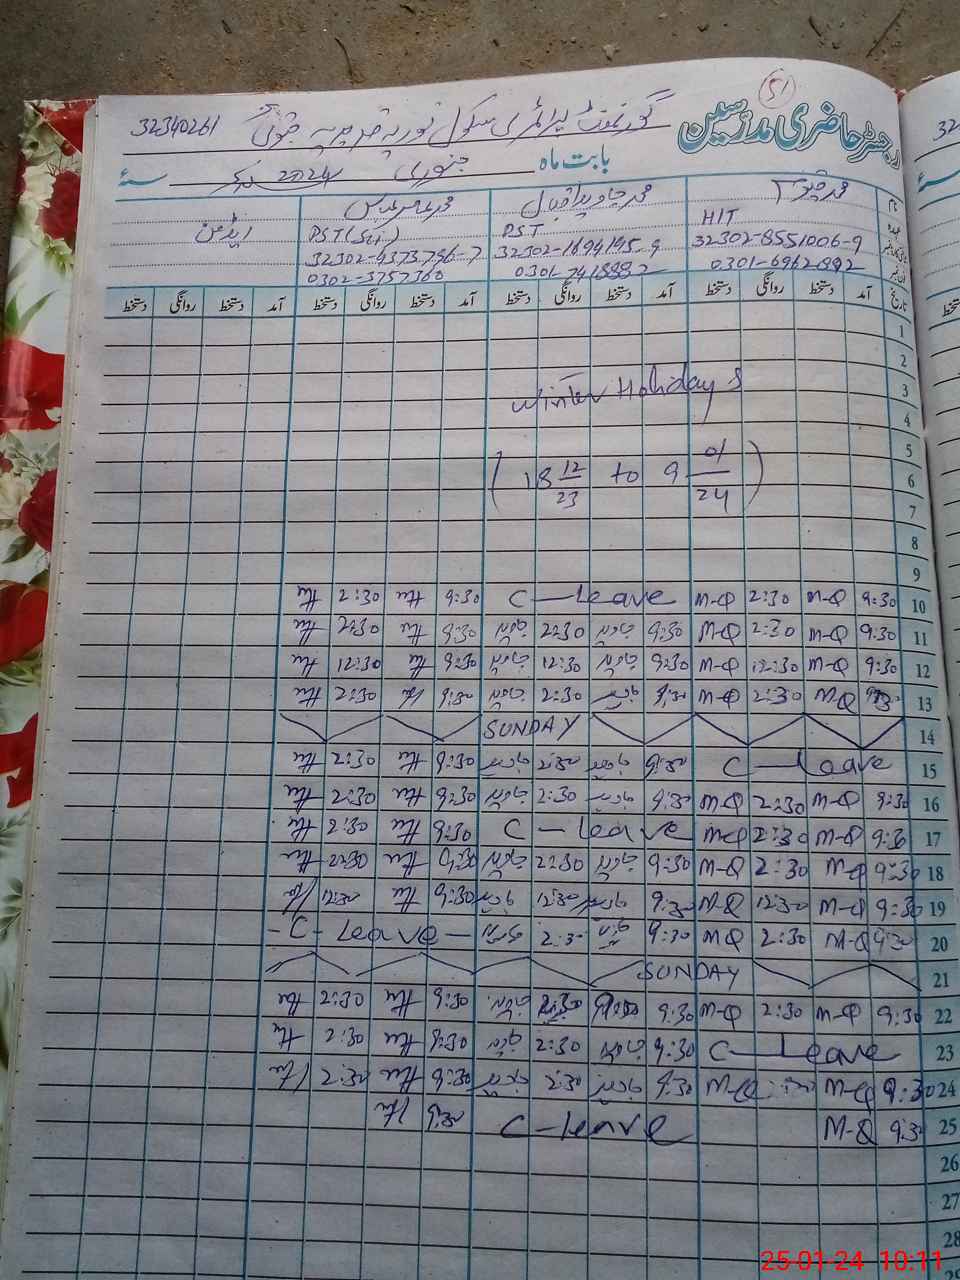 51
رجسٹر حاضری مدرسین
گورنمنٹ پرائمری سکول نور پور 32340261
بابت ماہ جنوری 2024 سنہ
نام محمد قیوم محمد جاوید اقبال محمد عامر عباس
عہدہ HIT PST PST (Sci) ایڈمن
32302-8551006-9 32302-1694195-9 32302-4373796-7
0301-6962892 0301-7418882 0302-3757360
تاریخ آمد دستخط روانگی دستخط آمد دستخط روانگی دستخط آمد دستخط روانگی دستخط آمد دستخط روانگی دستخط
1
2
3 Winter Holidays
4
5
6 (18 12/23 to 9 01/24)
7
8
9
10 9:30 M-Q 2:30 M-Q C-Leave 9:30 2:30
11 9:30 M-Q 2:30 M-Q 9:30 جاوید 2:30 جاوید 9:30 2:30
12 9:30 M-Q 12:30 M-Q 9:30 جاوید 12:30 جاوید 9:30 12:30
13 9:30 M-Q 2:30 M-Q 9:30 جاوید 2:30 جاوید 9:30 2:30
14 SUNDAY
15 C-Leave 9:30 جاوید 2:30 جاوید 9:30 2:30
16 9:30 M-Q 2:30 M-Q 9:30 جاوید 2:30 جاوید 9:30 2:30
17 9:30 M-Q 2:30 M-Q C-Leave 9:30 2:30
18 9:30 M-Q 2:30 M-Q 9:30 جاوید 2:30 جاوید 9:30 2:30
19 9:30 M-Q 12:30 M-Q 9:30 جاوید 12:30 جاوید 9:30 12:30
20 9:30 M-Q 2:30 MQ 9:30 جاوید 2:30 جاوید -C-Leave-
21 SUNDAY
22 9:30 M-Q 2:30 M-Q 9:30 جاوید 2:30 جاوید 9:30 2:30
23 C-Leave 9:30 جاوید 2:30 جاوید 9:30 2:30
24 9:30 M-Q 2:30 M-Q 9:30 جاوید 2:30 جاوید 9:30 2:30
25 9:30 M-Q C-Leave 9:30
26
27
28
25-01-24 10:11